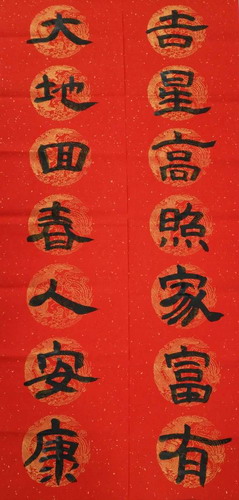 吉星高照家富有
大地回春人安康